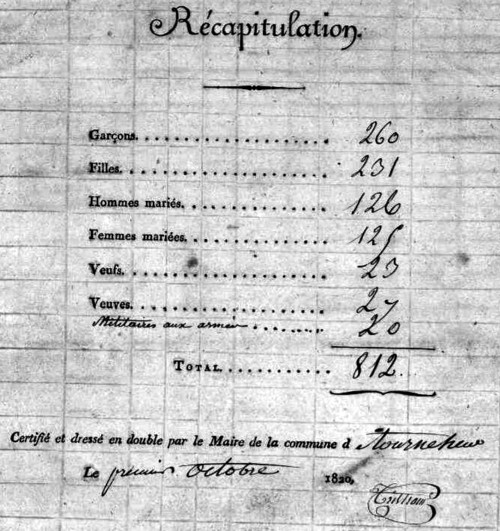 Récapitulation.
Garçons. . . . . . . . . . . . . . . . . . 260
Filles. . . . . . . . . . . . . . . . . . . 231
Hommes mariés. . . . . . . . . . . . . 126
Femmes mariées. . . . . . . . . . . . . 125
Veufs. . . . . . . . . . . . . . . . . . . 23
Veuves. . . . . . . . . . . . . . . . . . 27
Militaires aux armées . . . . . . . 20
TOTAL. . . . . . . . . . . 812.
Certifié et dressé en double par le Maire de la commune d Tournehem
Le premier octobre 1820.